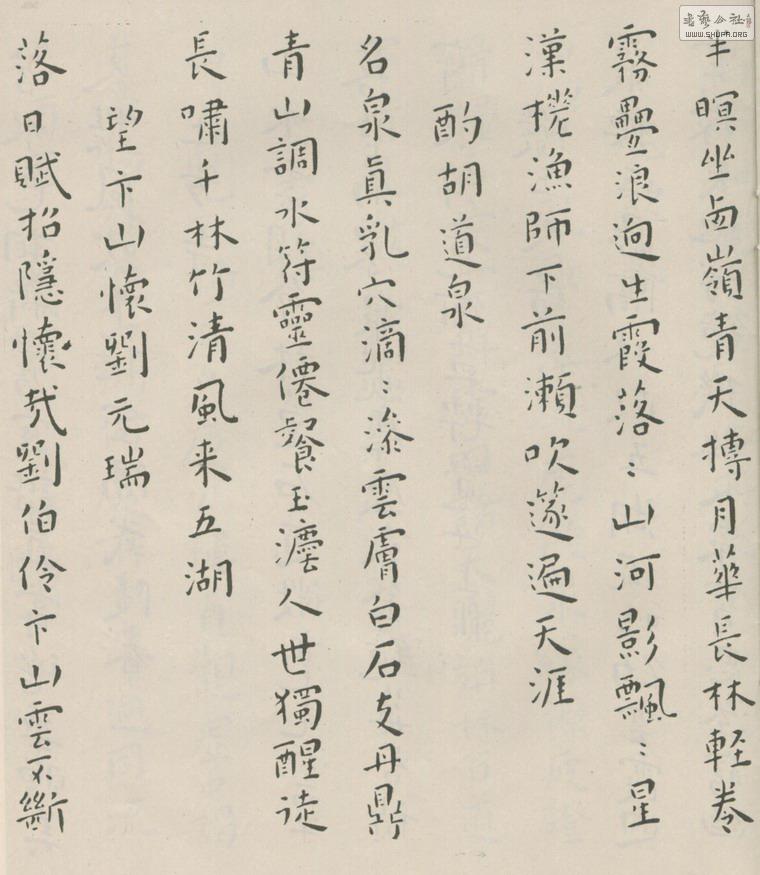 書藝公社
WWW.SHUFA.ORG
暝坐西嶺青天摶月華長林輕卷
霧疊浪迥生霞落〻山河影飄〻星
漢漁師下前瀨吹篴遍天涯
酌胡道泉
名泉眞乳穴滴〻滲雲膚白石支丹鼎
青山調水符靈僊餐玉瀣人世獨醒徒
長嘯千林竹清風来五湖
望卞山懷劉元瑞
落日賦招隱懷哉劉伯伶卞山雲不斷